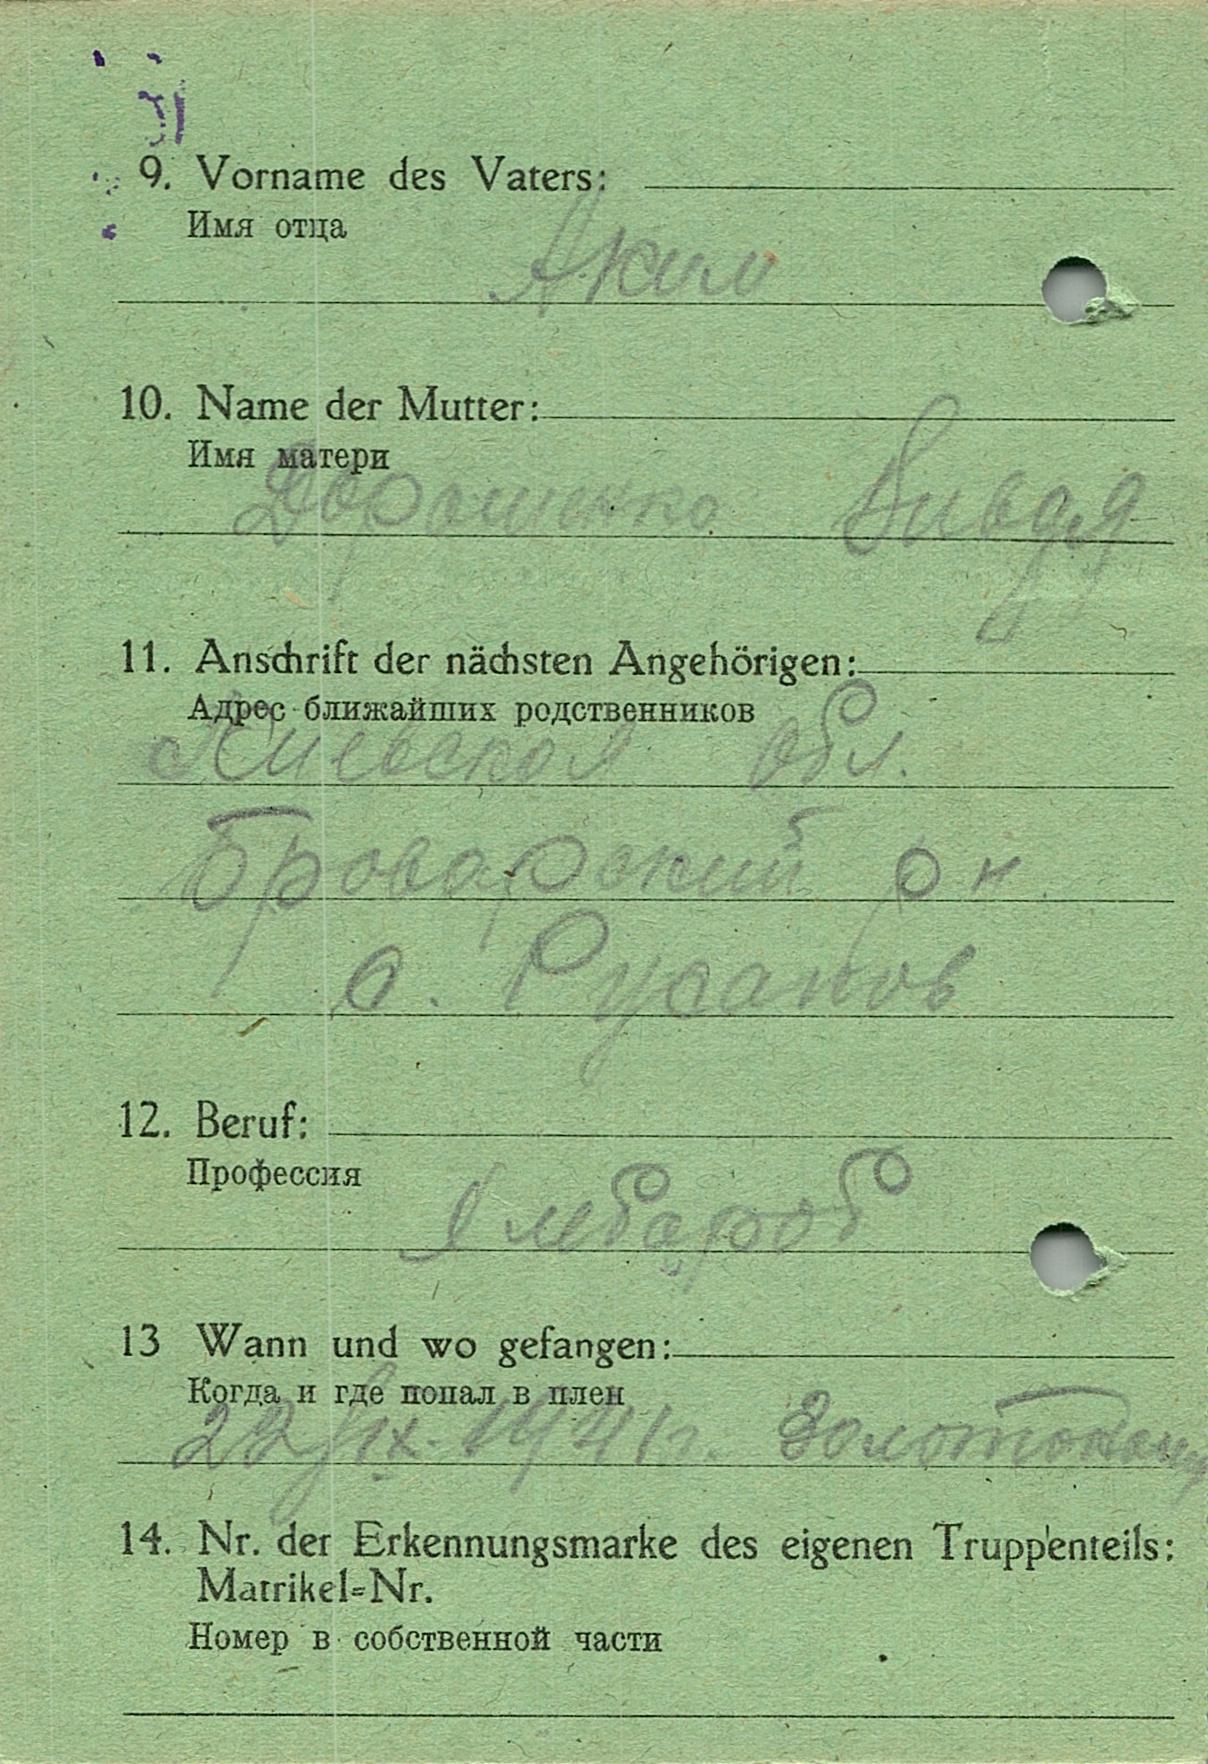 9. Vorname des Vaters:
Имя отца
Аким
10. Name der Mutter:
Имя матери
Дорошенко
11. Anschrift der nächsten Angehörigen:
Адрес ближайших родственников
Киевская обл.
Броварский р н
с. Русанов
12. Beruf:
Профессия
13 Wann und wo gefangen:
Когда и где попал в плен
22 IX. 1941 г.
14. Nr. der Erkennungsmarke des eigenen Truppenteils:
Matrikel=Nr.
Номер в собственной части